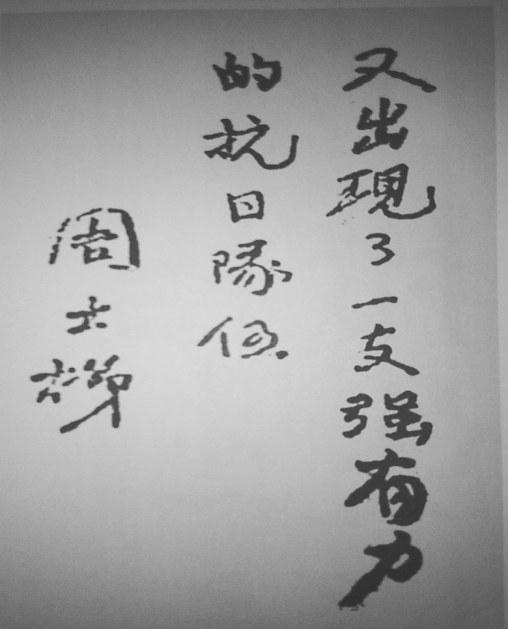 又出現了一支强有力
的抗日隊伍
周士梯